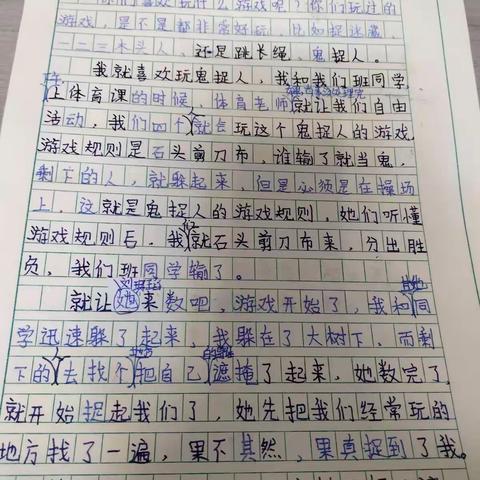 你们喜欢玩什么游戏呢？你们玩过的
游戏，是不是都非常好玩，比如捉迷藏，
一二三木头人，还是跳长绳、鬼捉人。
我就喜欢玩鬼捉人，我和我们班同学
上体育课的时候，体育老师就让我们自由
活动，我们四个就会玩这个鬼捉人的游戏
游戏规则是石头剪刀布，谁输了就当鬼，
剩下的人，就躲起来，但是必须是在操场
上，这就是鬼捉人的游戏规则，她们听懂
游戏规则后，我们就石头剪刀布来，分出胜
负，我们班同学输了。
就让她来数吧，游戏开始了，我和其他同
学迅速躲了起来，我躲在了大树下，而剩
下的去找个地方把自己的身体遮掩了起来，她数完了，
就开始捉起我们了，她先把我们经常玩的
地方找了一遍，果不其然，果真捉到了我。